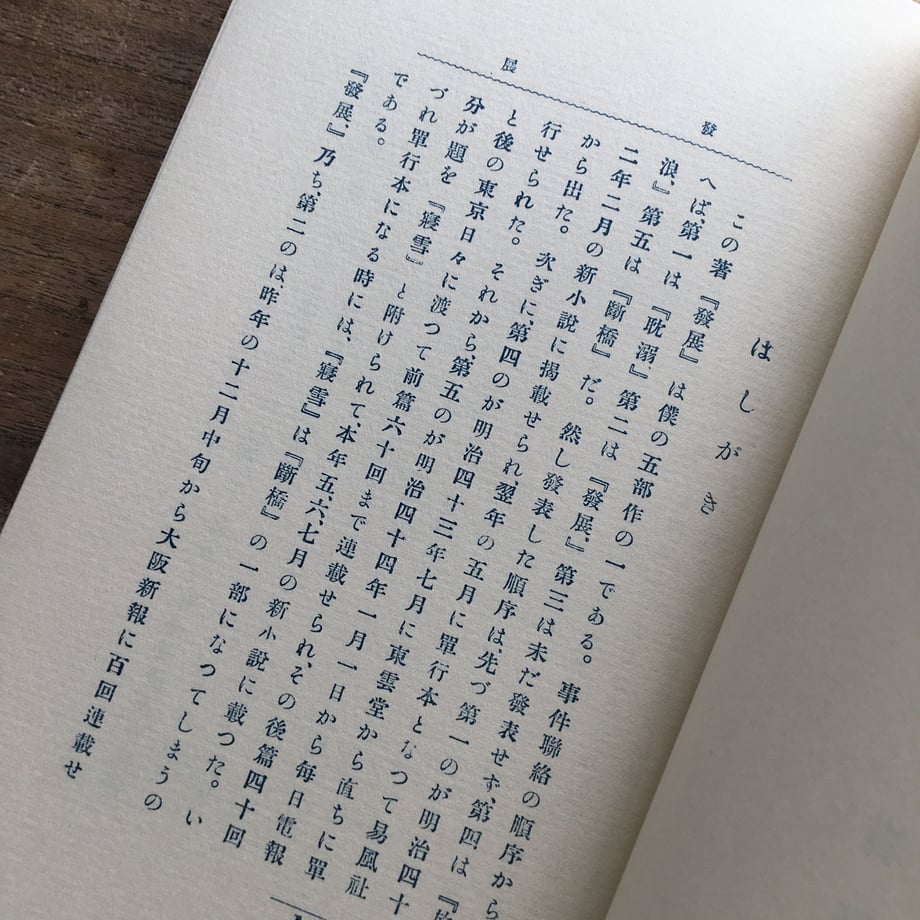 發展
はしがき
この著『發展』は僕の五部作の一である。事件聯絡の順序から
へば、第一は『耽溺、』第二は『發展、』第三は未だ發表せず、第四は『放
浪、』第五は『斷橋』だ。然し發表した順序は、先づ第一のが明治四十
二年二月の新小說に揭載せられ、翌年の五月に單行本となつて易風社
から出た。次ぎに、第四のが明治四十三年七月に東雲堂から直ちに單
行せられた。それから、第五のが明治四十四年一月一日から每日電報
と後の東京日々に渡つて前篇六十回まで連載せられ、その後篇四十回
分が題を『寢雪』と附けられて、本年五、六、七月の新小說に載つた。い
づれ單行本になる時には、『寢雪』は『斷橋』の一部になつてしまうの
である。
『發展、』乃ち、第二のは、昨年の十二月中旬から大阪新報に百回連載せ